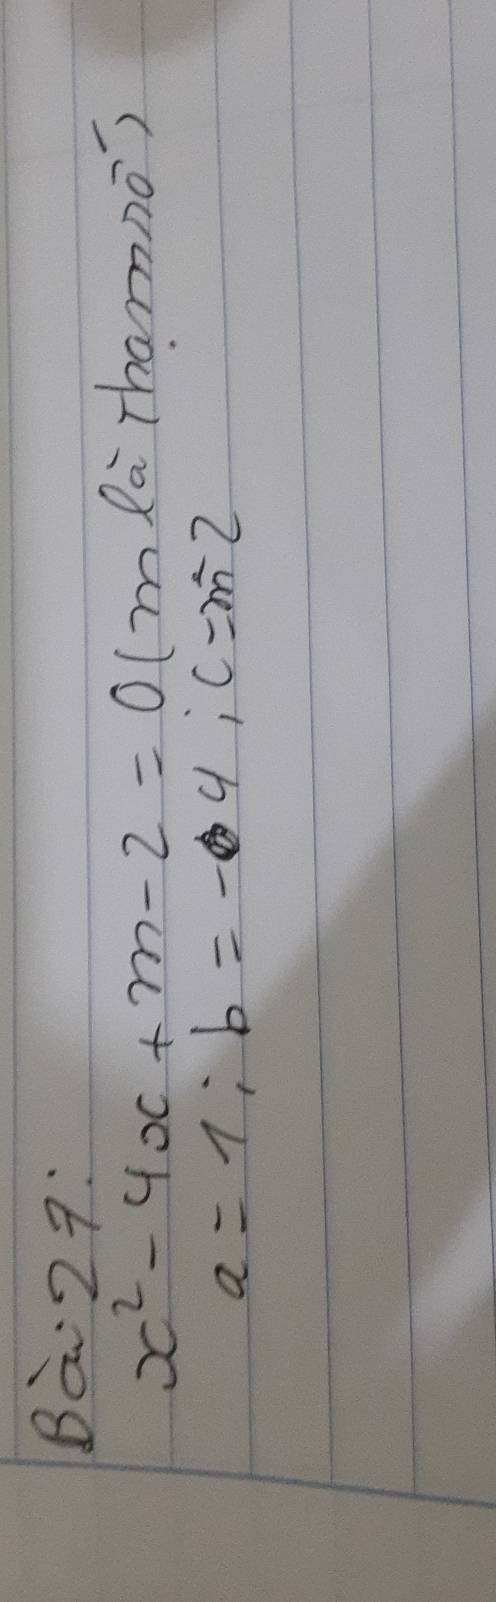 Bài 27:
x² - 4x + m - 2 = 0 (m là tham số)
a = 1; b = -4; c = m - 2